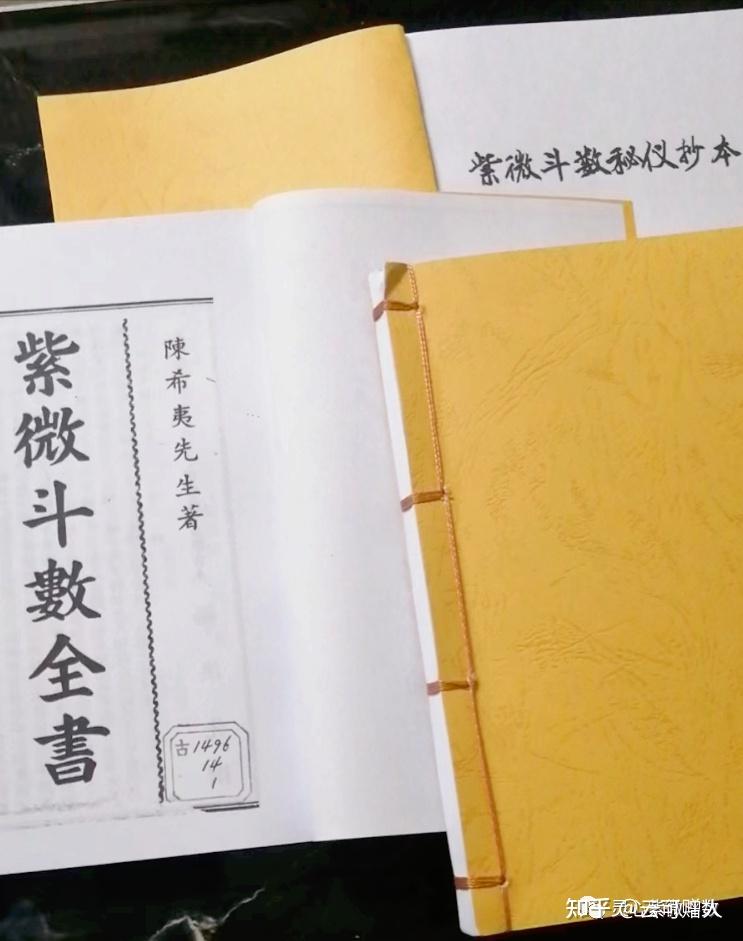 紫微斗数秘仪抄本
陳希夷先生著
紫微斗數全書
古1496
14
1
知乎